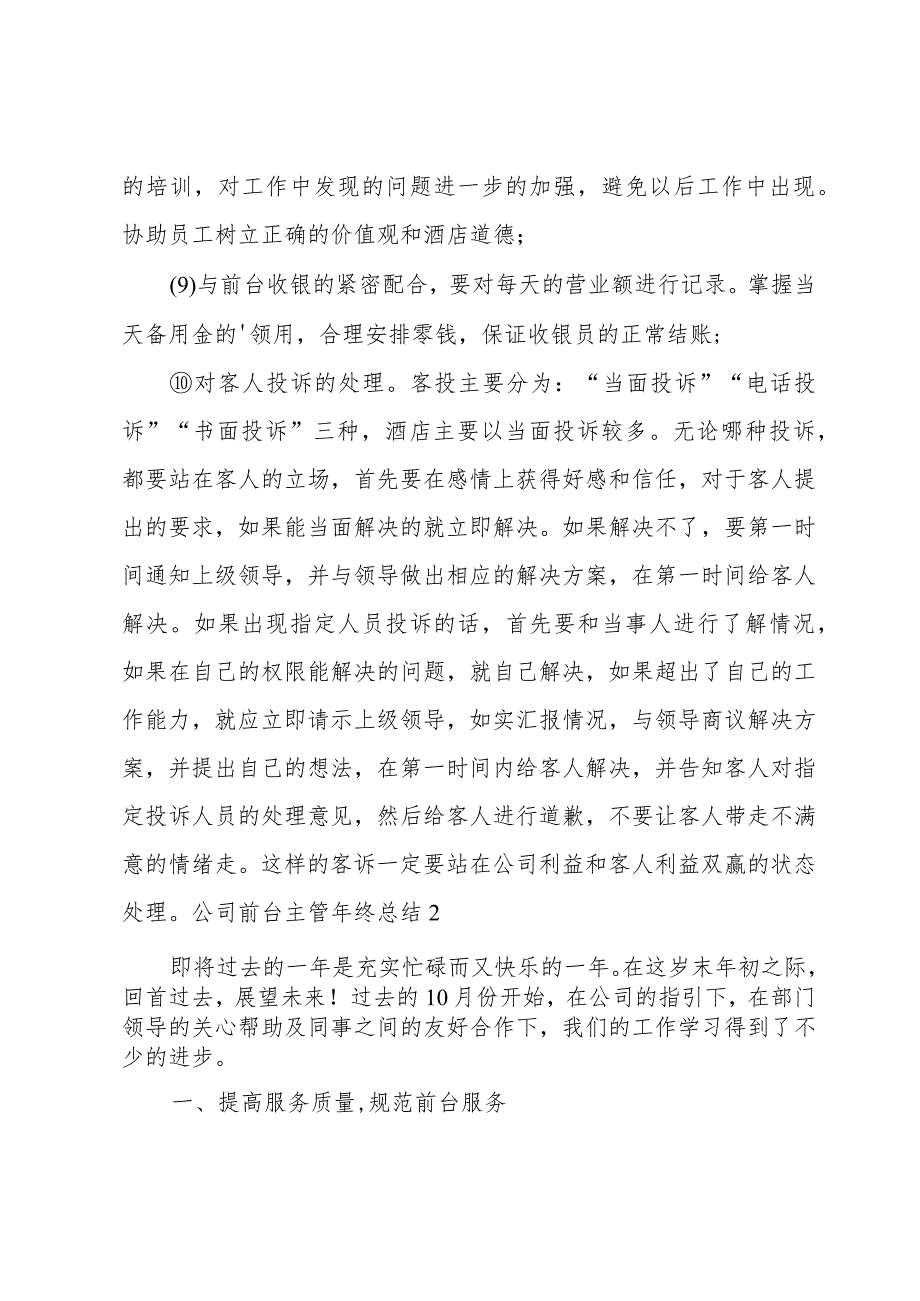 的培训，对工作中发现的问题进一步的加强，避免以后工作中出现。
协助员工树立正确的价值观和酒店道德；
(9)与前台收银的紧密配合，要对每天的营业额进行记录。掌握当
天备用金的'领用，合理安排零钱，保证收银员的正常结账;
⑩对客人投诉的处理。客投主要分为：“当面投诉”“电话投
诉”“书面投诉”三种，酒店主要以当面投诉较多。无论哪种投诉，
都要站在客人的立场，首先要在感情上获得好感和信任，对于客人提
出的要求，如果能当面解决的就立即解决。如果解决不了，要第一时
间通知上级领导，并与领导做出相应的解决方案，在第一时间给客人
解决。如果出现指定人员投诉的话，首先要和当事人进行了解情况，
如果在自己的权限能解决的问题，就自己解决，如果超出了自己的工
作能力，就应立即请示上级领导，如实汇报情况，与领导商议解决方
案，并提出自己的想法，在第一时间内给客人解决，并告知客人对指
定投诉人员的处理意见，然后给客人进行道歉，不要让客人带走不满
意的情绪走。这样的客诉一定要站在公司利益和客人利益双赢的状态
处理。公司前台主管年终总结2
即将过去的一年是充实忙碌而又快乐的一年。在这岁末年初之际，
回首过去，展望未来！过去的10月份开始，在公司的指引下，在部门
领导的关心帮助及同事之间的友好合作下，我们的工作学习得到了不
少的进步。
一、提高服务质量,规范前台服务